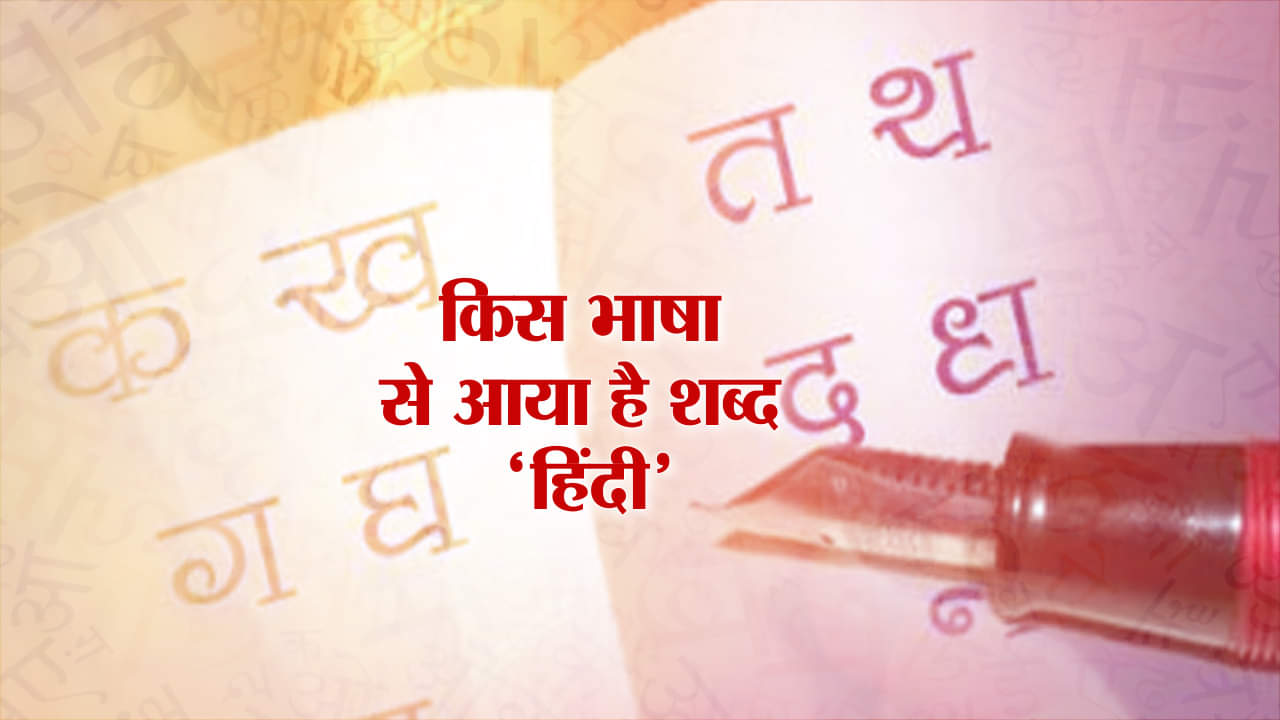 त थ
क ख
द ध
ग घ
किस भाषा
से आया है शब्द
‘हिंदी’